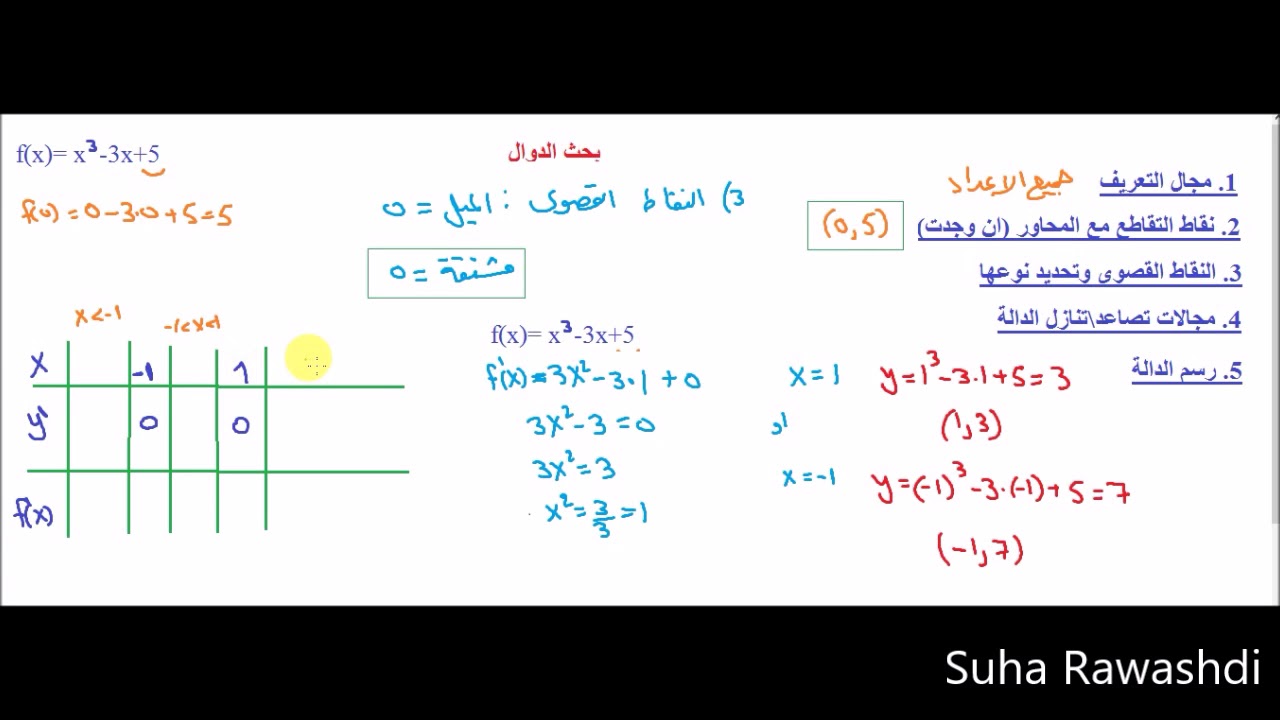 بحث الدوال
f(x)= x³-3x+5
f(0) = 0 - 3·0 + 5 = 5
1. مجال التعريف جميع الاعداد
2. نقاط التقاطع مع المحاور (ان وجدت) (0,5)
3. النقاط القصوى وتحديد نوعها
4. مجالات تصاعد\تنازل الدالة
5. رسم الدالة
3) النقاط القصوى : الميل = 0
مشتقة = 0
f(x)= x³-3x+5
f'(x) = 3x² - 3·1 + 0
3x² - 3 = 0
3x² = 3
x² = 3/3 = 1
x = 1
او
x = -1
y = 1³ - 3·1 + 5 = 3
(1,3)
y = (-1)³ - 3·(-1) + 5 = 7
(-1,7)
x<-1 -1<x<1
x -1 1
y' 0 0
f(x)
Suha Rawashdi